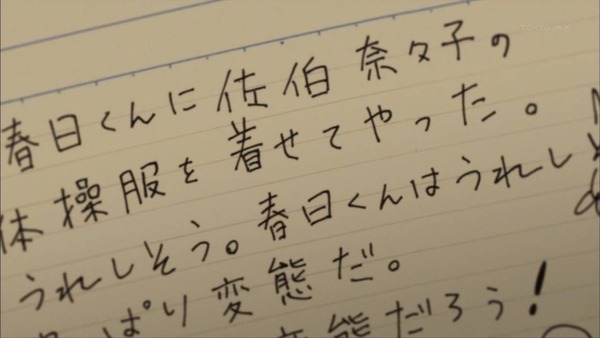 春日くんに佐伯奈々子の
体操服を着せてやった。
うれしそう。春日くんはうれし
ぱり変態だ。
変態だろう！
TOKYO MX